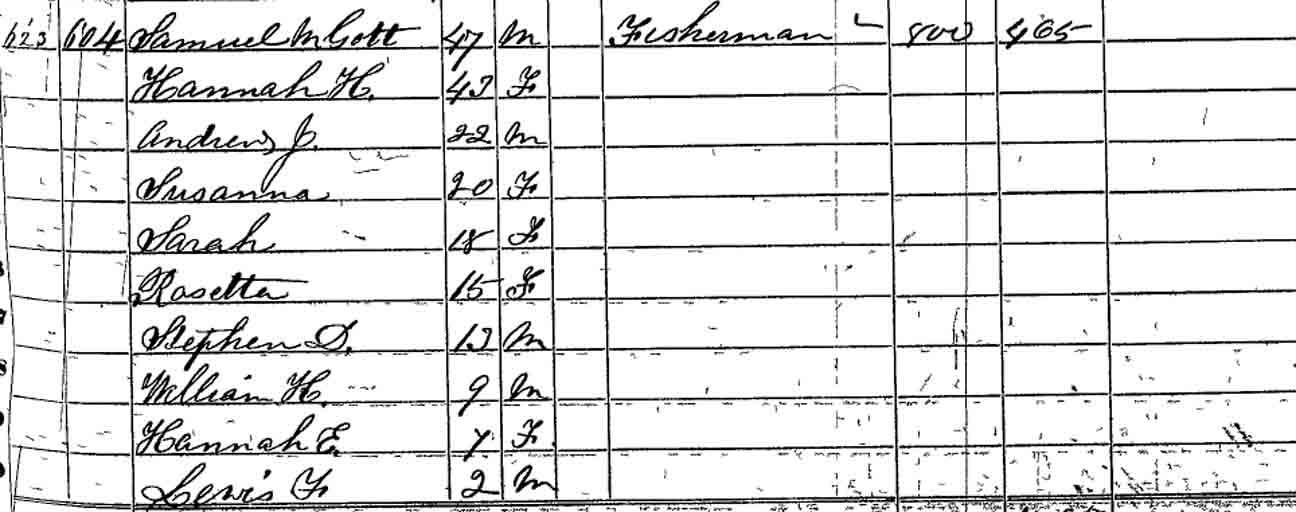 623 604 Samuel M Gott 47 M Fisherman 400 465
Hannah H. 43 F
Andrew J. 22 M
Susanna 20 F
Sarah 18 F
Rosetta 15 F
Stephen D. 13 M
William H. 9 M
Hannah E. 7 F
Lewis F 2 M